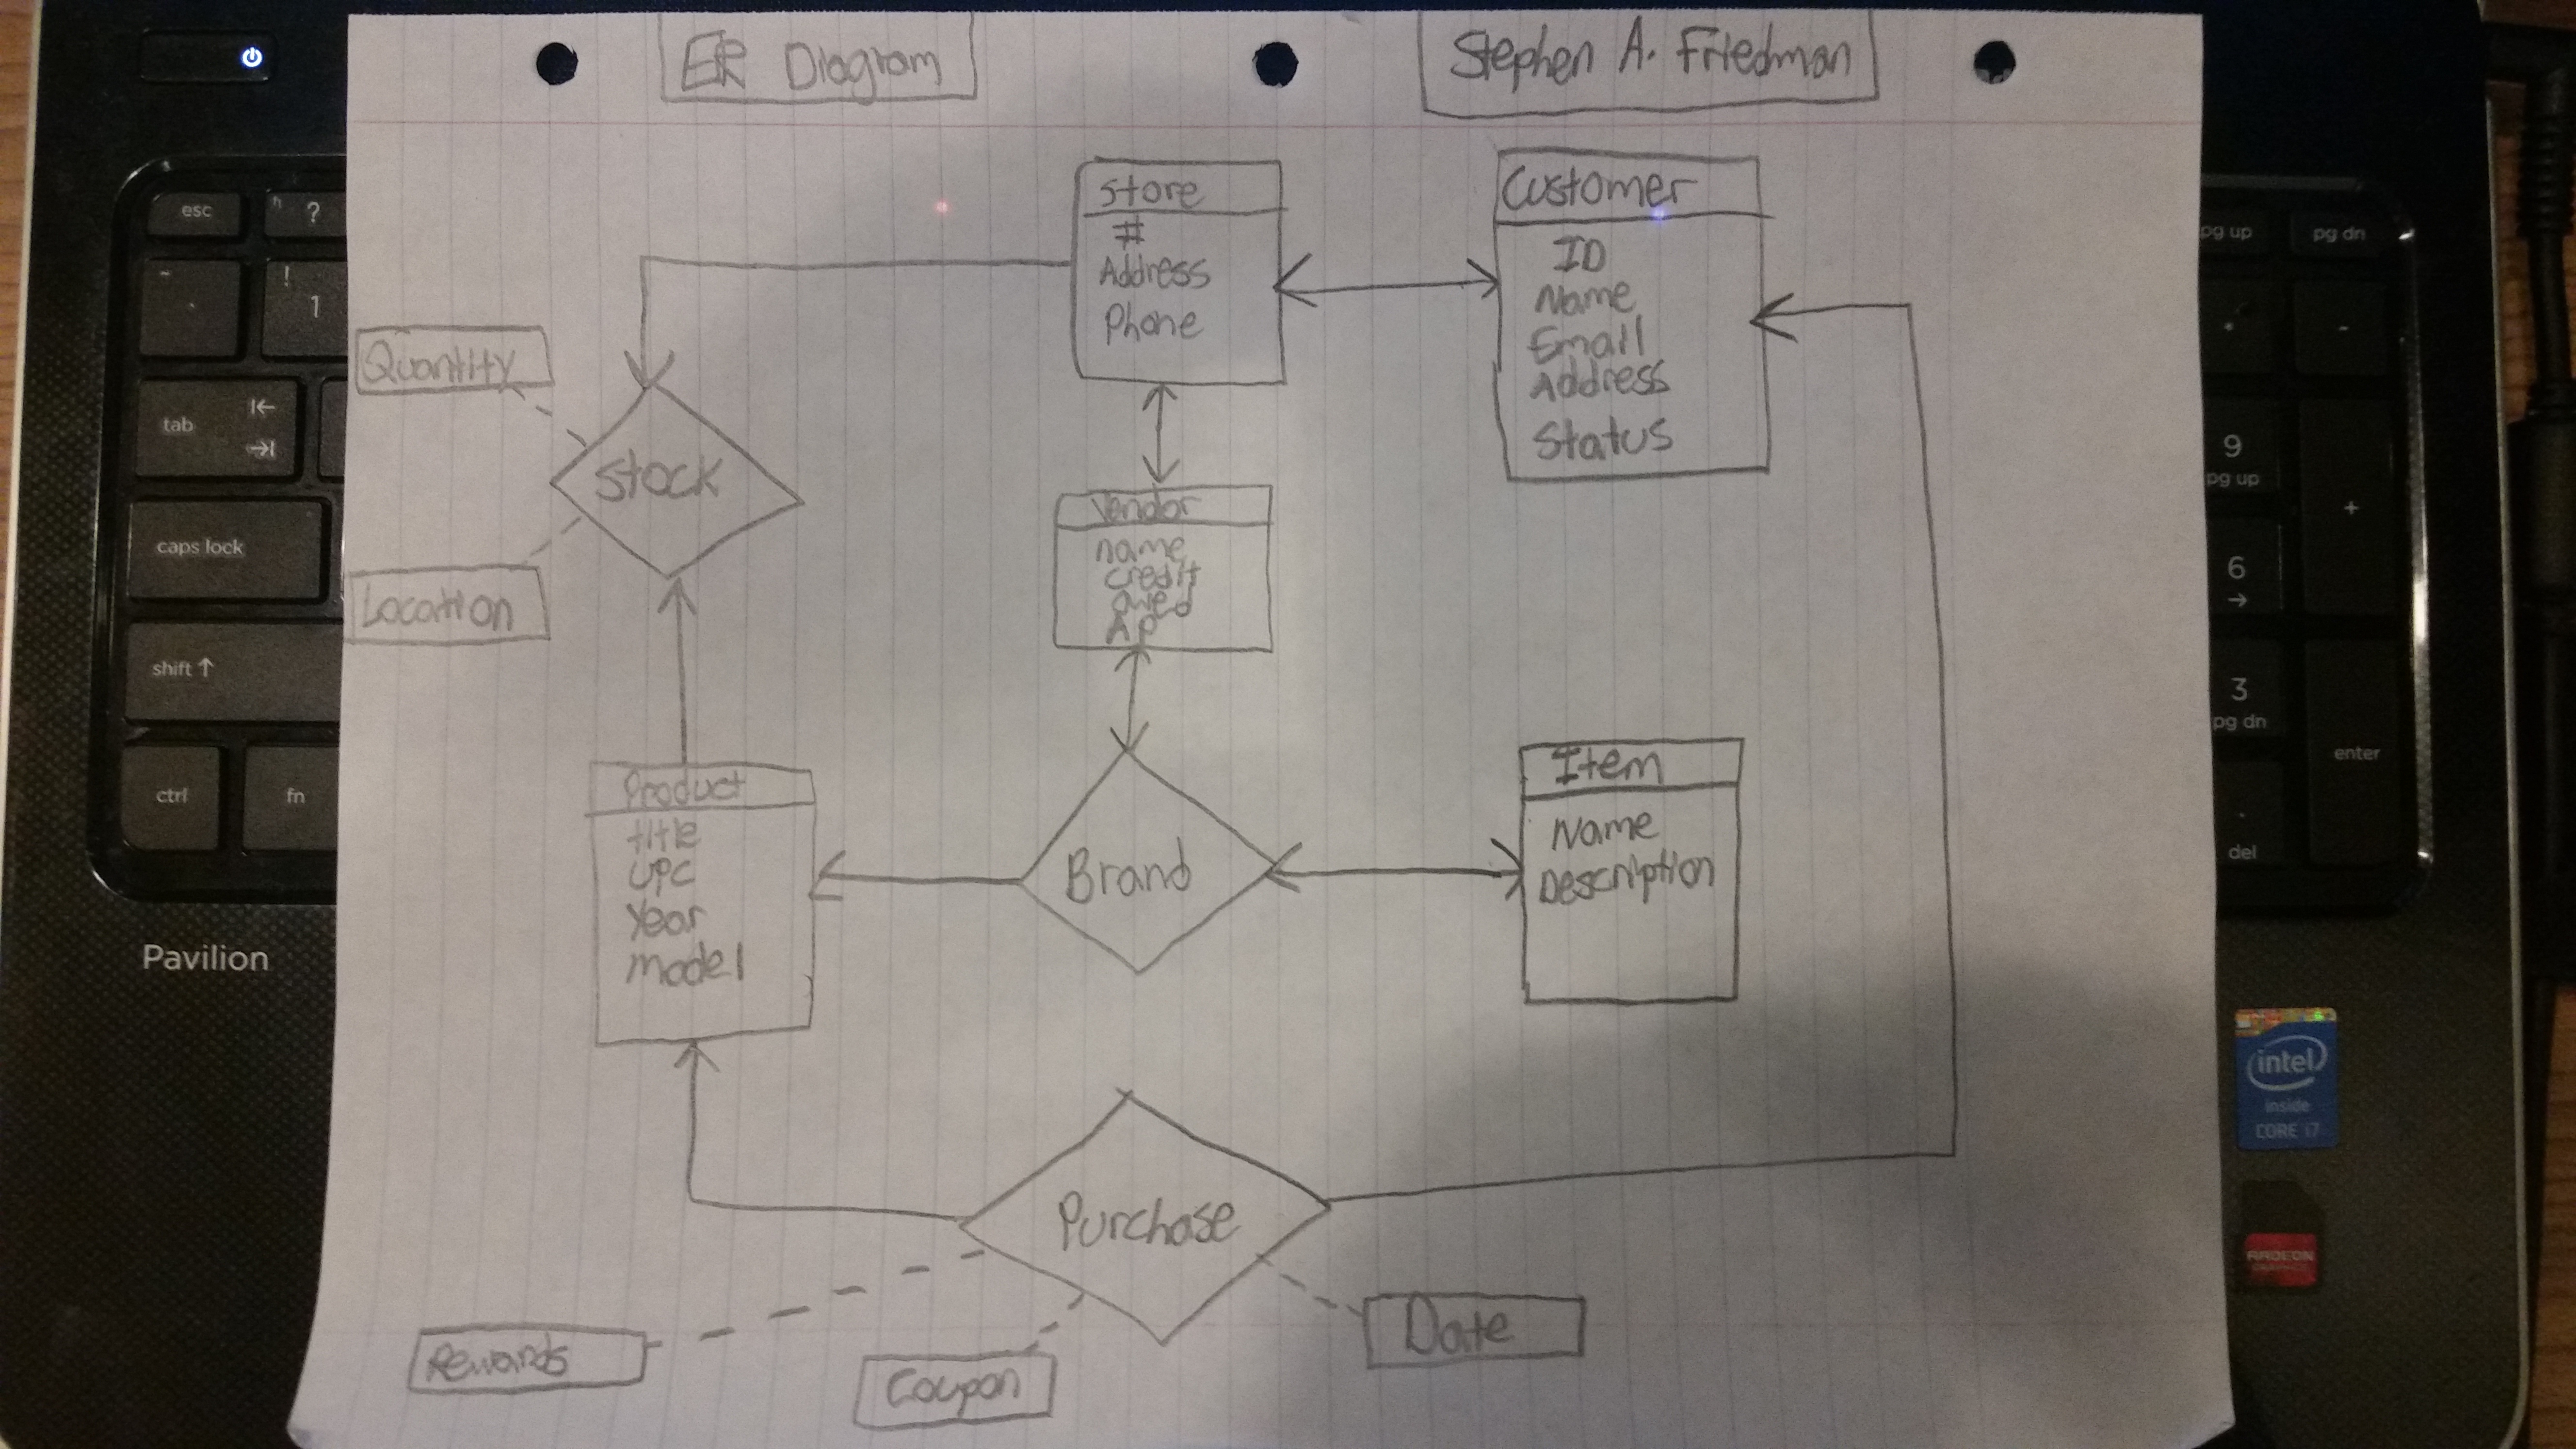 ER Diagram
Stephen A. Friedman
Store
#
Address
Phone
Customer
ID
Name
Email
Address
Status
Quantity
Stock
Location
Vendor
name
credit
owed
AP
Product
title
UPC
Year
model
Brand
Item
Name
Description
Purchase
Rewards
Coupon
Date
esc
?
!
1
tab
caps lock
shift
ctrl
fn
Pavilion
pg up
pg dn
-
9
pg up
+
6
3
pg dn
enter
.
del
intel
inside
CORE i7
RADEON
GRAPHICS